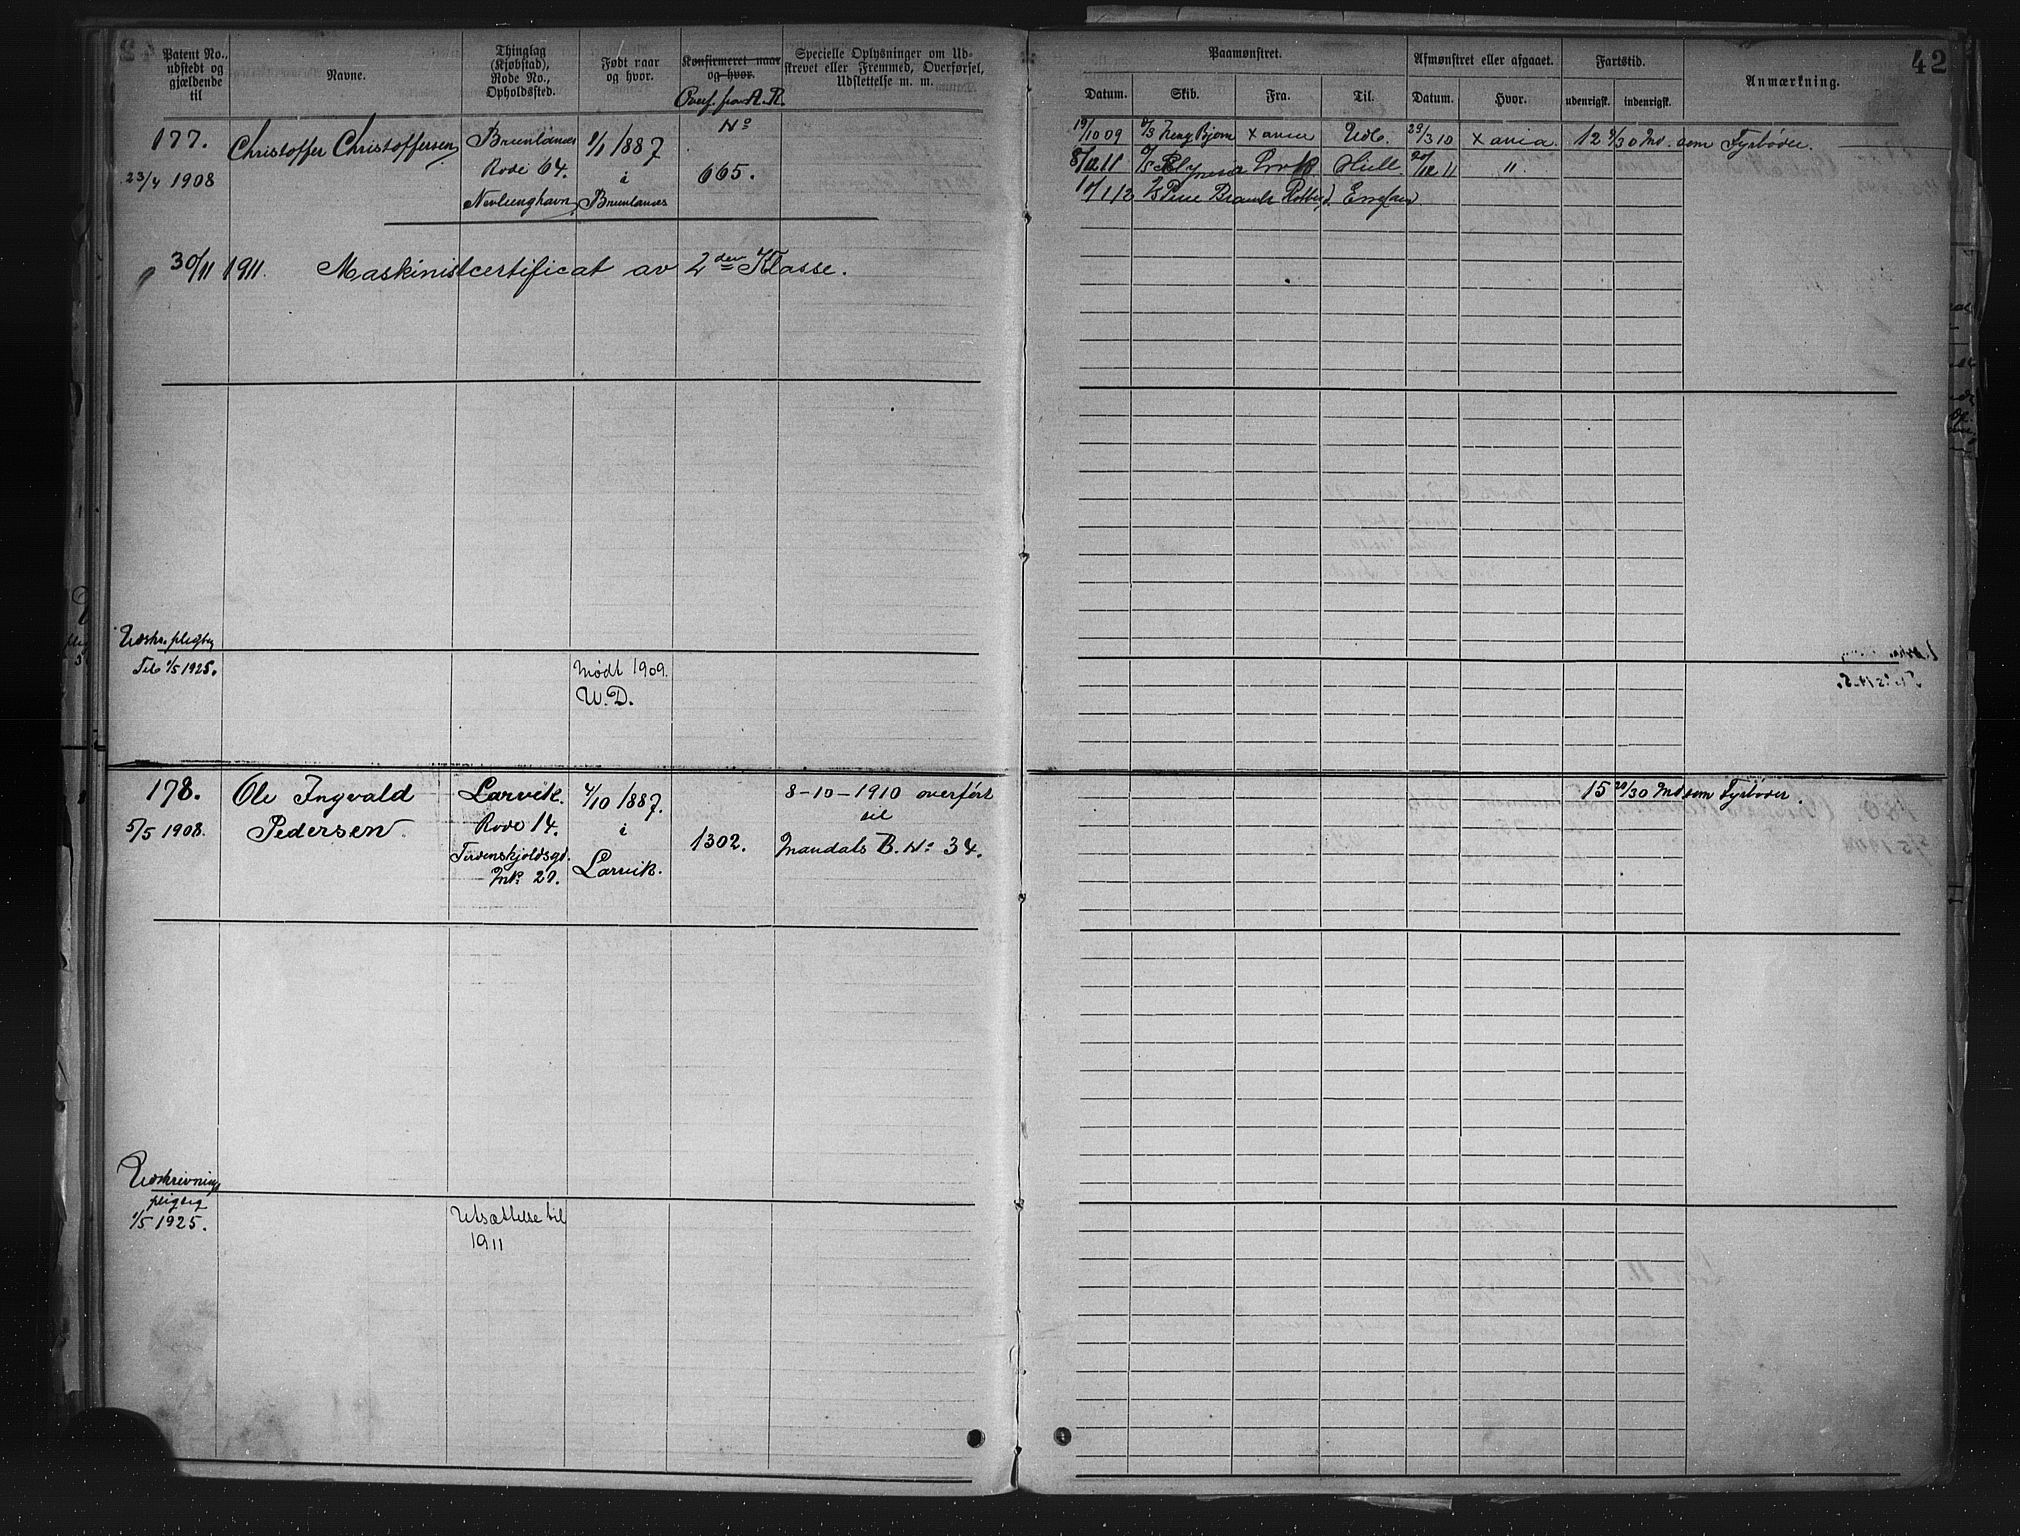 Patent No., udstedt og gjældende til
Navne.
Thinglag (Kjøbstad), Rode No., Opholdssted.
Født naar og hvor.
Konfirmeret naar og hvor.
Overf. fra A. R. No
Specielle Oplysninger om Udskrevet eller Fremmed, Overførsel, Udslettelse m. m.
Paamønstret.
Afmønstret eller afgaaet.
Fartstid.
Anmærkning.
42
Datum.
Skib.
Fra.
Til.
Datum.
Hvor.
udenrigsk.
indenrigsk.
177.
23/4 1908
Christoffer Christoffersen
Brunlanes
Rode 64.
Nevlunghavn
1/1 1887
i
Brunlanes
665.
19/10 09 Kong Bjørn Xania Udl. 29/3 10 Xania 12 9/30 Md. som Fyrbøder.
8/12 11 Lvk Hull 20/12 11 "
10/1 12
30/11 1911. Maskinistcertificat av 2den Klasse.
Udskr. pligtig
Til 1/5 1925.
Mødt 1909.
U.D.
178.
5/5 1908.
Ole Ingvald
Pedersen.
Larvik.
Rode 14.
Tordenskjoldsgd.
Mk. 27.
4/10 1887.
i
Larvik.
1302.
8-10-1910 overført
til
Mandals B. No 34.
15 20/30 Md som Fyrbøder.
Udskrivnings
pligtig
1/5 1925.
Utsættelse til
1911